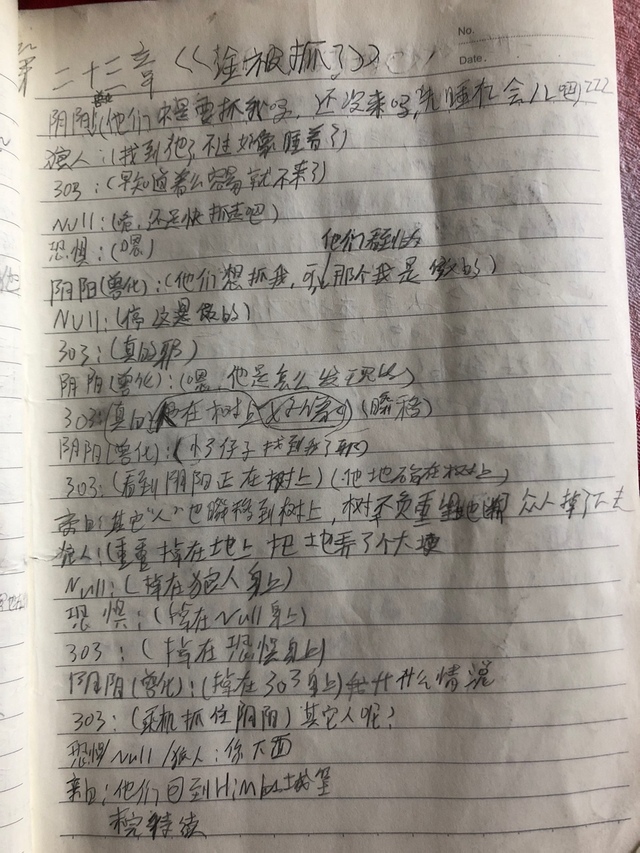 No.
Date.
二十三章《《终被抓了》》
阴阳:(他们不是要抓我吗,还没来吗,先睡机会儿吧)zzz
狼人:(找到他了不过好像睡着了)
303:(早知道着么容易就不来了)
Null:(哈,还是快抓走吧)
恐惧:(嘿)
他们看到的
阴阳(兽化):(他们想抓我,可那个我是假的)
NUll:(停这是假的)
303:(真的耶)
阴阳(兽化):(嘿,他是怎么发现的)
303:真的在树上(瞬移)
阴阳(兽化):(小子找到我了耶)
303:(看到阴阳正在树上)(他也在树上)
旁白:其它"人"也瞬移到树上,树不负重 众人掉了下去
狼人:(重重掉在地上把地弄了个大坑
Null:(掉在狼人身上)
恐惧:(掉在Null身上)
303:(掉在恐惧身上)
阴阳(兽化):(掉在303身上)什什么情况
303:(乘机抓住阴阳)其它人呢?
恐惧/Null/狼人:你下面
旁白:他们回到Him的城堡
未完待续